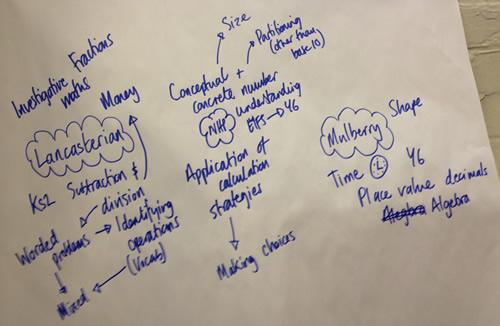 Investigative
maths
Fractions
Money
Lancasterian
KS2 Subtraction &
division
Worded
problems
Identifying
operations
(Vocab)
Mixed
Size
Partitioning
(other than
base 10)
Conceptual +
concrete number
understanding
NHF
EYFS → Y6
Application of
calculation
strategies
Making choices
Shape
Mulberry
Time
Y6
Place value decimals
Alegbra Algebra